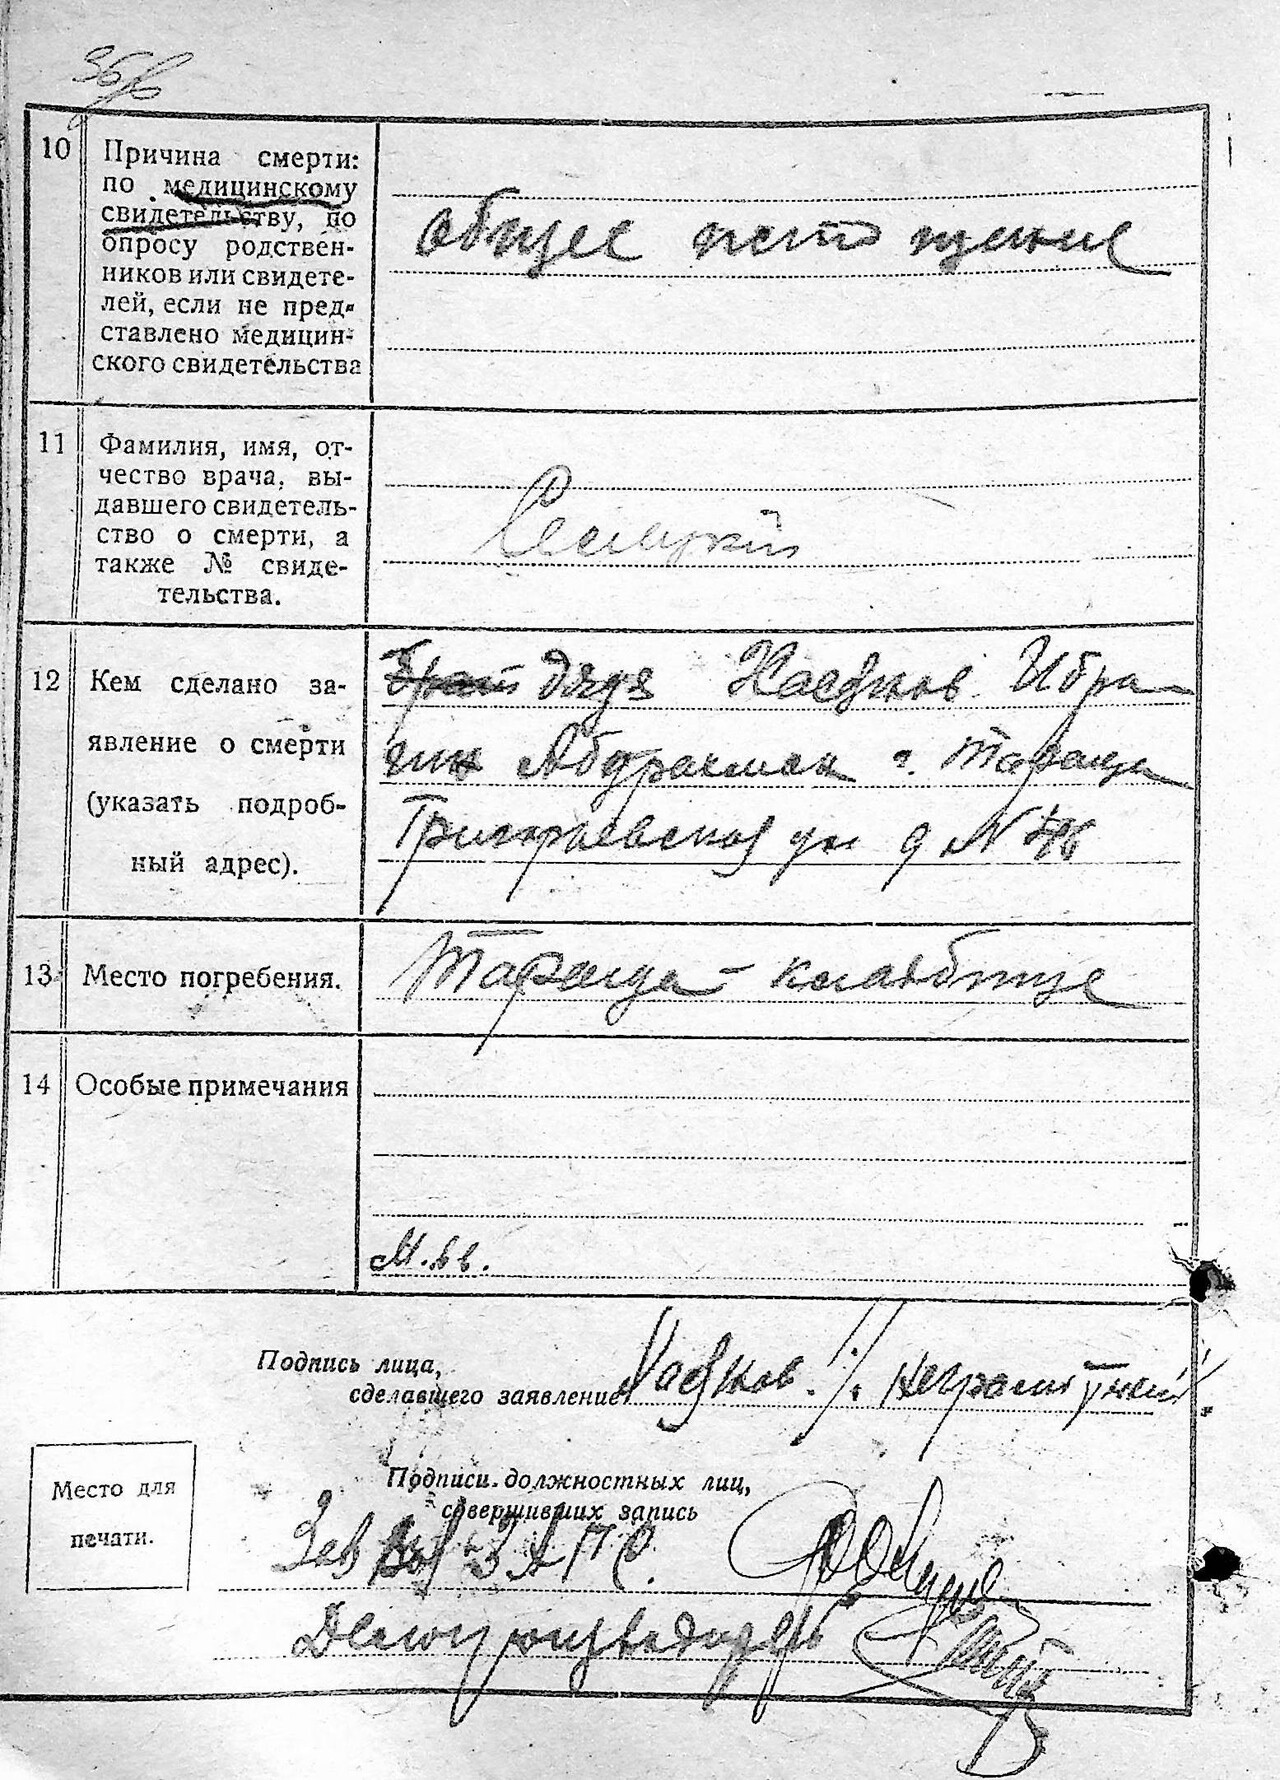 10 Причина смерти:
по медицинскому
свидетельству, по
опросу родствен-
ников или свидете-
лей, если не пред-
ставлено медицин-
ского свидетельства
общее истощение
11 Фамилия, имя, от-
чество врача, вы-
давшего свидетель-
ство о смерти, а
также № свиде-
тельства.
12 Кем сделано за-
явление о смерти
(указать подроб-
ный адрес).
Брат дядя Ибра
гим Абдрахман г. Тараща
ул д №
13 Место погребения.
Тараща - кладбище
14 Особые примечания
Подпись лица,
сделавшего заявление
неграмотный
Подписи должностных лиц,
совершивших запись
Место для
печати.
Зав ЗАГС.
Делопроизводитель